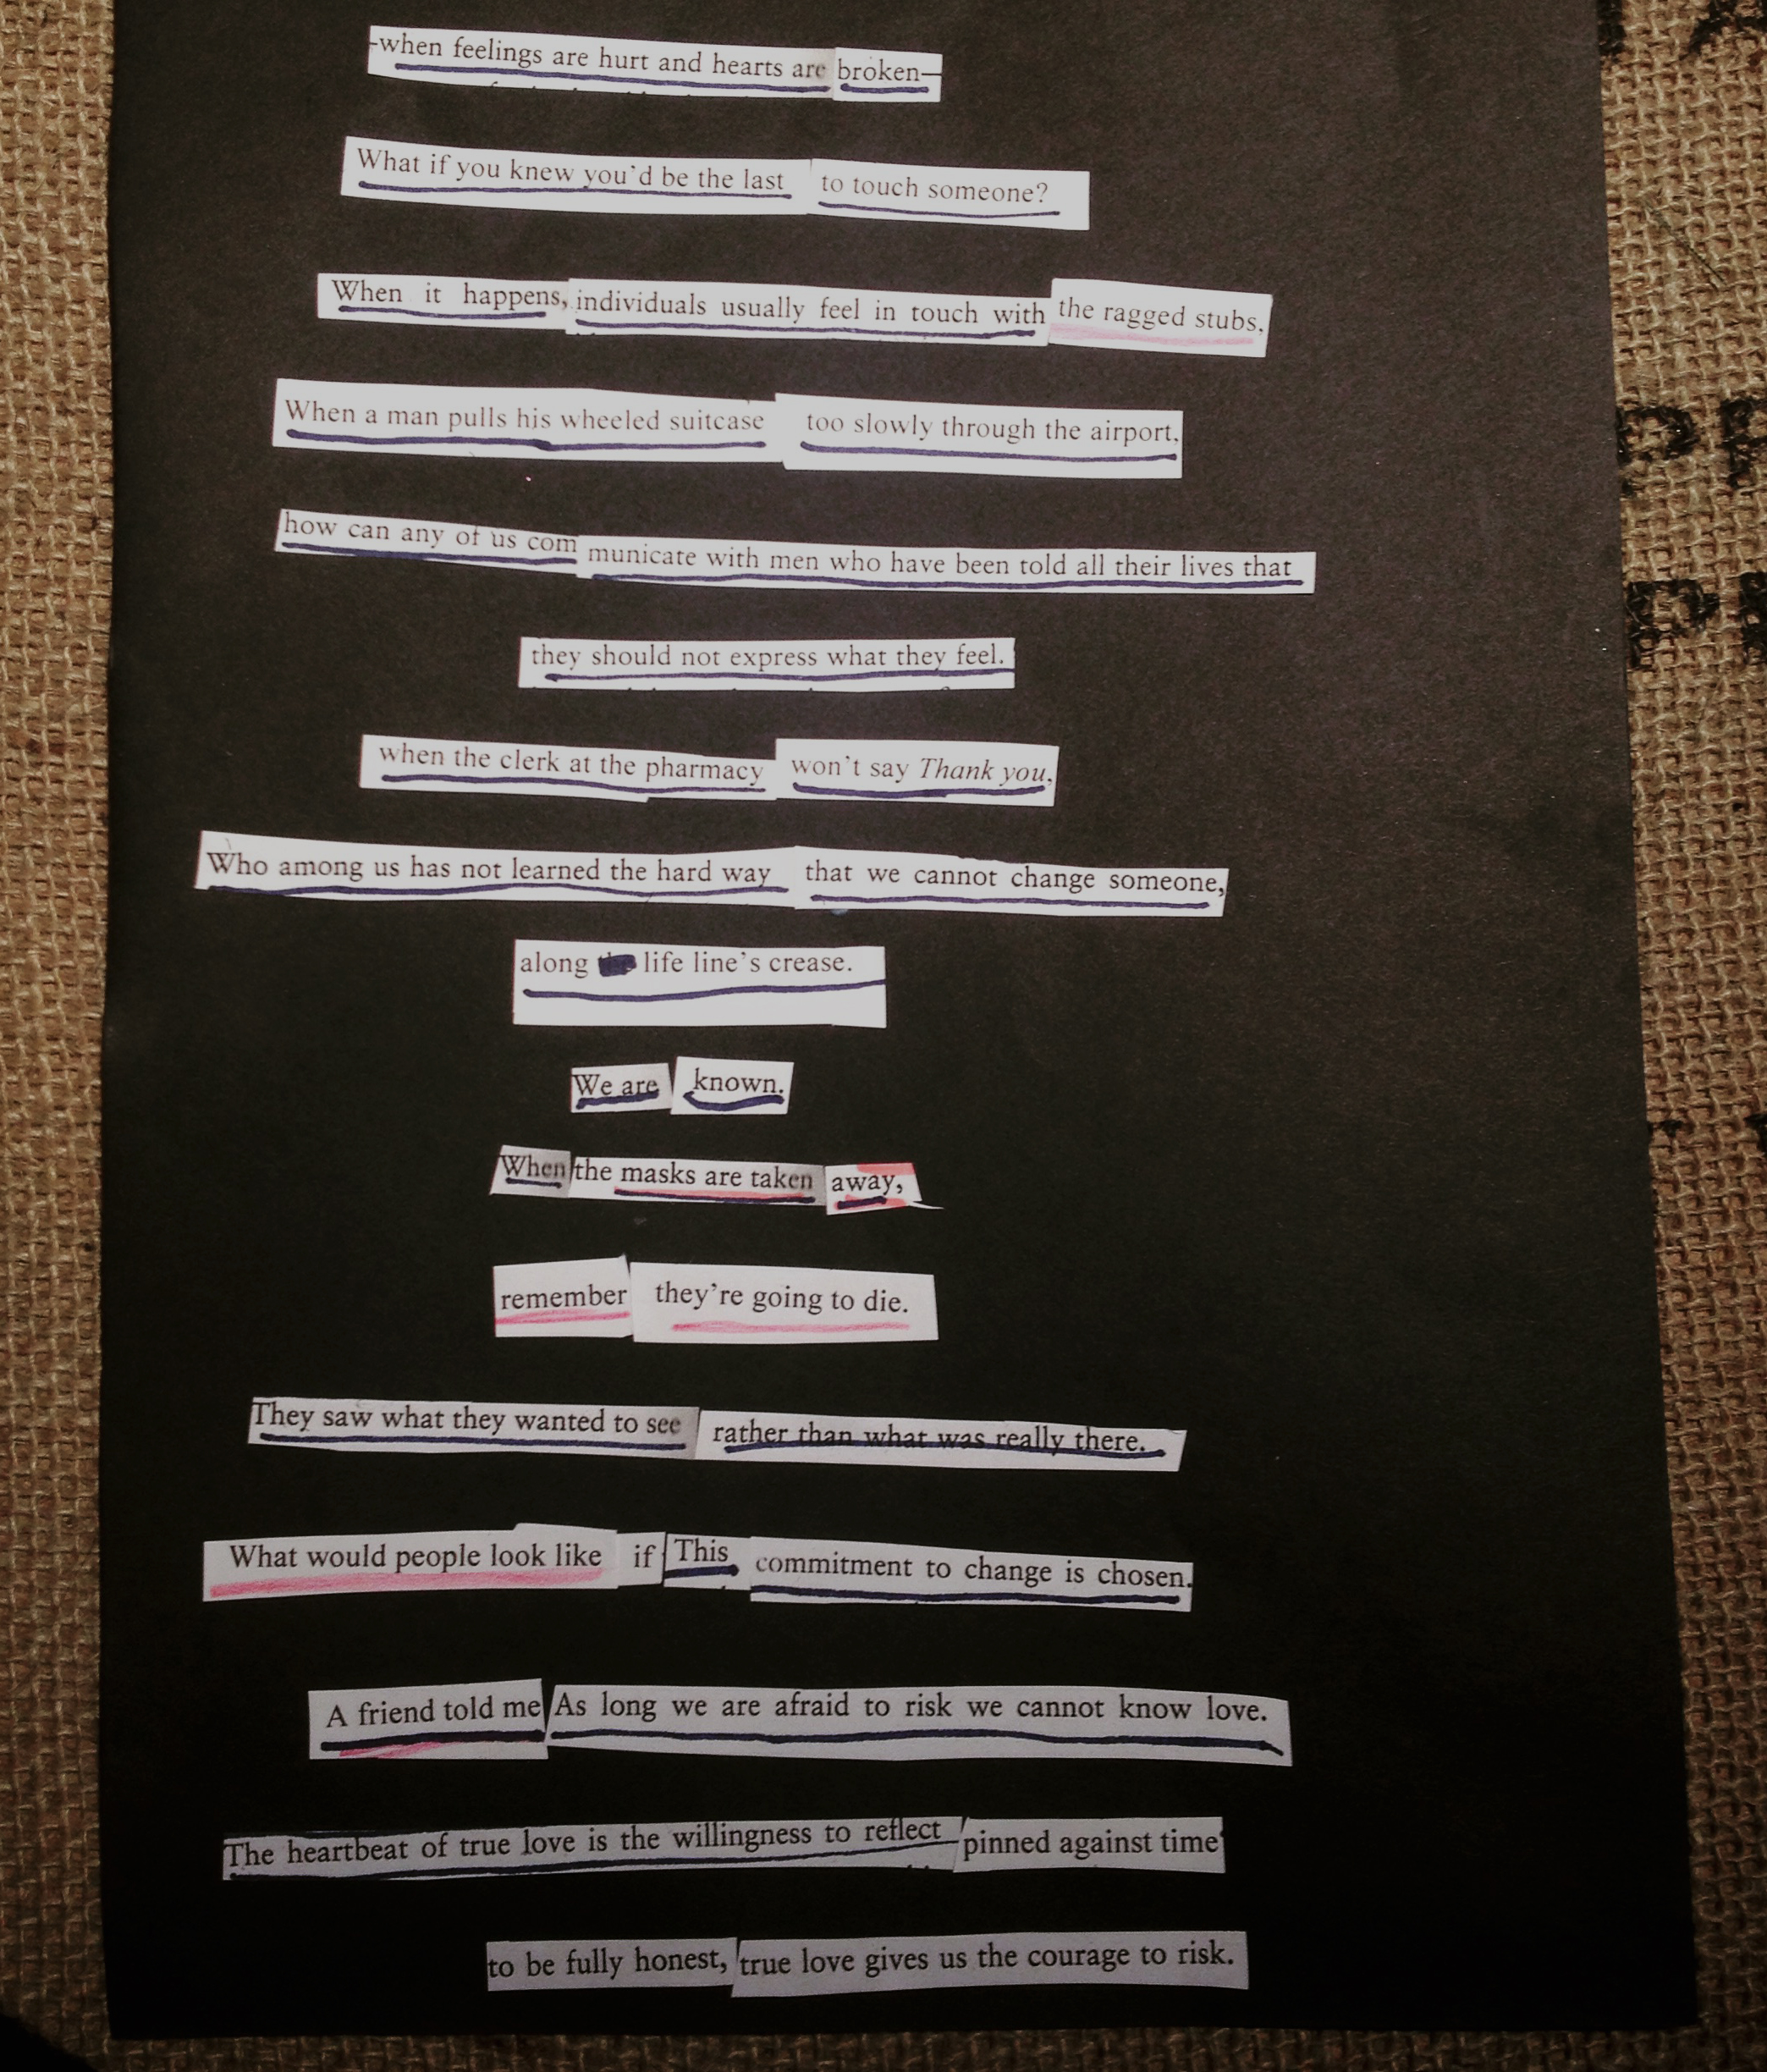 -when feelings are hurt and hearts are broken—
What if you knew you'd be the last to touch someone?
When it happens, individuals usually feel in touch with the ragged stubs,
When a man pulls his wheeled suitcase too slowly through the airport,
how can any of us com municate with men who have been told all their lives that
they should not express what they feel.
when the clerk at the pharmacy won't say Thank you,
Who among us has not learned the hard way that we cannot change someone,
along life line's crease.
We are known.
When the masks are taken away,
remember they're going to die.
They saw what they wanted to see rather than what was really there.
What would people look like if This commitment to change is chosen.
A friend told me As long we are afraid to risk we cannot know love.
The heartbeat of true love is the willingness to reflect pinned against time
to be fully honest, true love gives us the courage to risk.